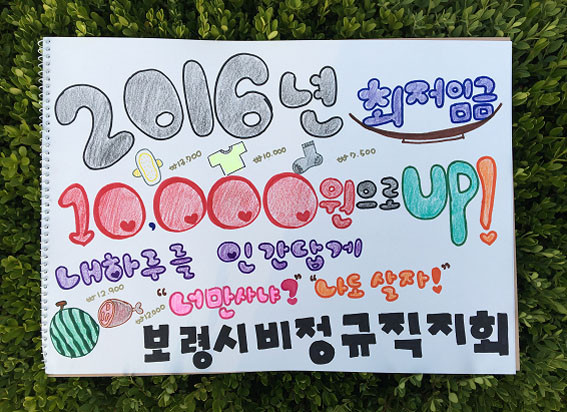 2016년 최저임금
₩18,900 ₩10,000 ₩7,500
10,000원으로 UP!
내하루를 인간답게
₩12,900 ₩12000
"너만사냐?" "나도 살자!"
보령시비정규직지회